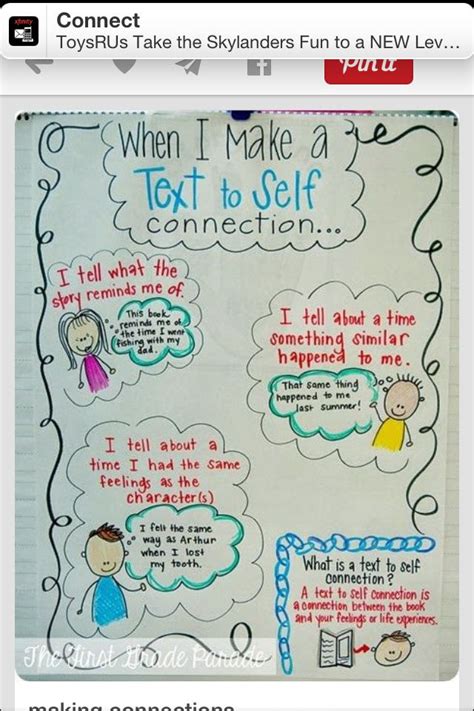 xfinity
Connect
ToysRUs Take the Skylanders Fun to a NEW Lev...
Pin it
When I Make a
Text to Self
connection...
I tell what the
story reminds me of.
This book
reminds me of
the time I went
fishing with my
dad.
I tell about a time
something similar
happened to me.
That same thing
happened to me
last summer!
I tell about a
time I had the same
feelings as the
character(s)
I felt the same
way as Arthur
when I lost
my tooth.
What is a text to self
connection?
A text to self connection is
a connection between the book
and your feelings or life experiences.
The First Grade Parade
making connections